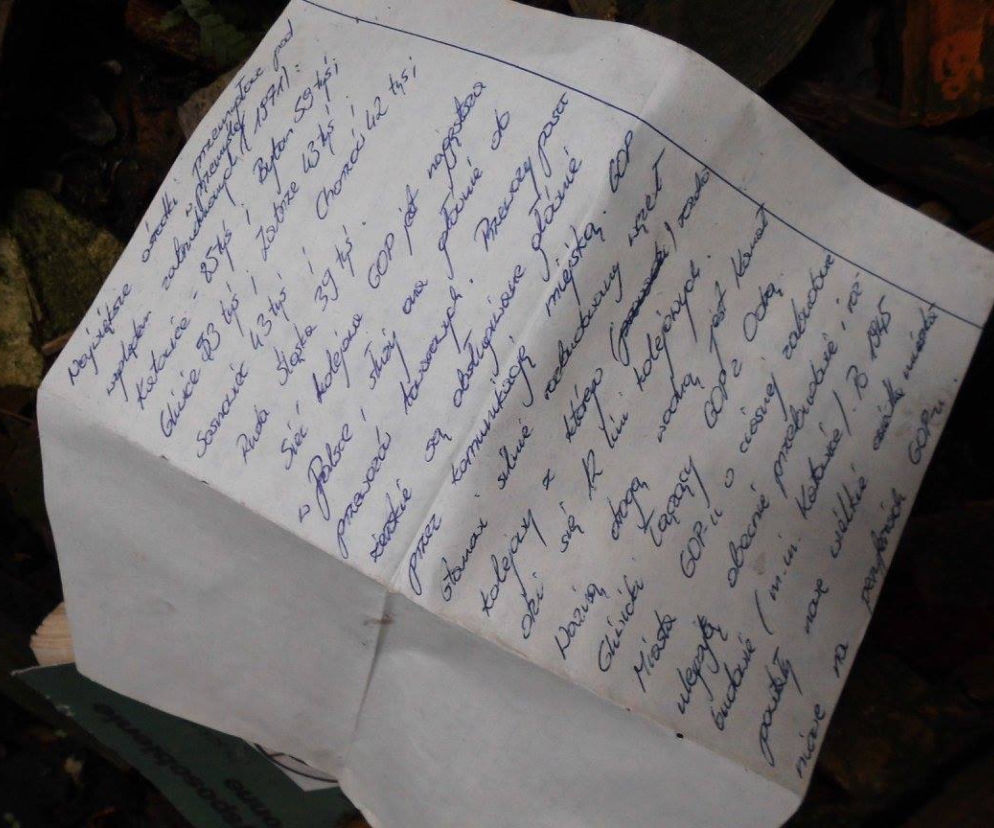 Największe ośrodki przemysłowe pod
względem zatrudnionych w przemyśle (1971):
Katowice - 85 tyś i Bytom 59 tyś i
Gliwice 53 tyś i Zabrze 43 tyś i
Sosnowiec 43 tyś i Chorzów 42 tyś i
Ruda Śląska 39 tyś.
Sieć kolejowa GOP jest najgęstsza
w Polsce i służy ona głównie do
przewozów towarowych. Przewozy pasa
żerskie są obsługiwane głównie
przez komunikację miejską. GOP
stanowi silnie rozbudowany węzeł
kolejowy z którego rozcho
dzi się 12 linii kolejowych.
Ważną drogą wodną jest Kanał
Gliwicki łączący GOP z Odrą
Miasta GOP-u o ciasnej zabudowie
ulegają obecnie przebudowie i roz
budowie (m.in. Katowice). Po 1945
powstały nowe wielkie osiedla mieszka
niowe na peryferiach GOP-u.
rgoosobowe